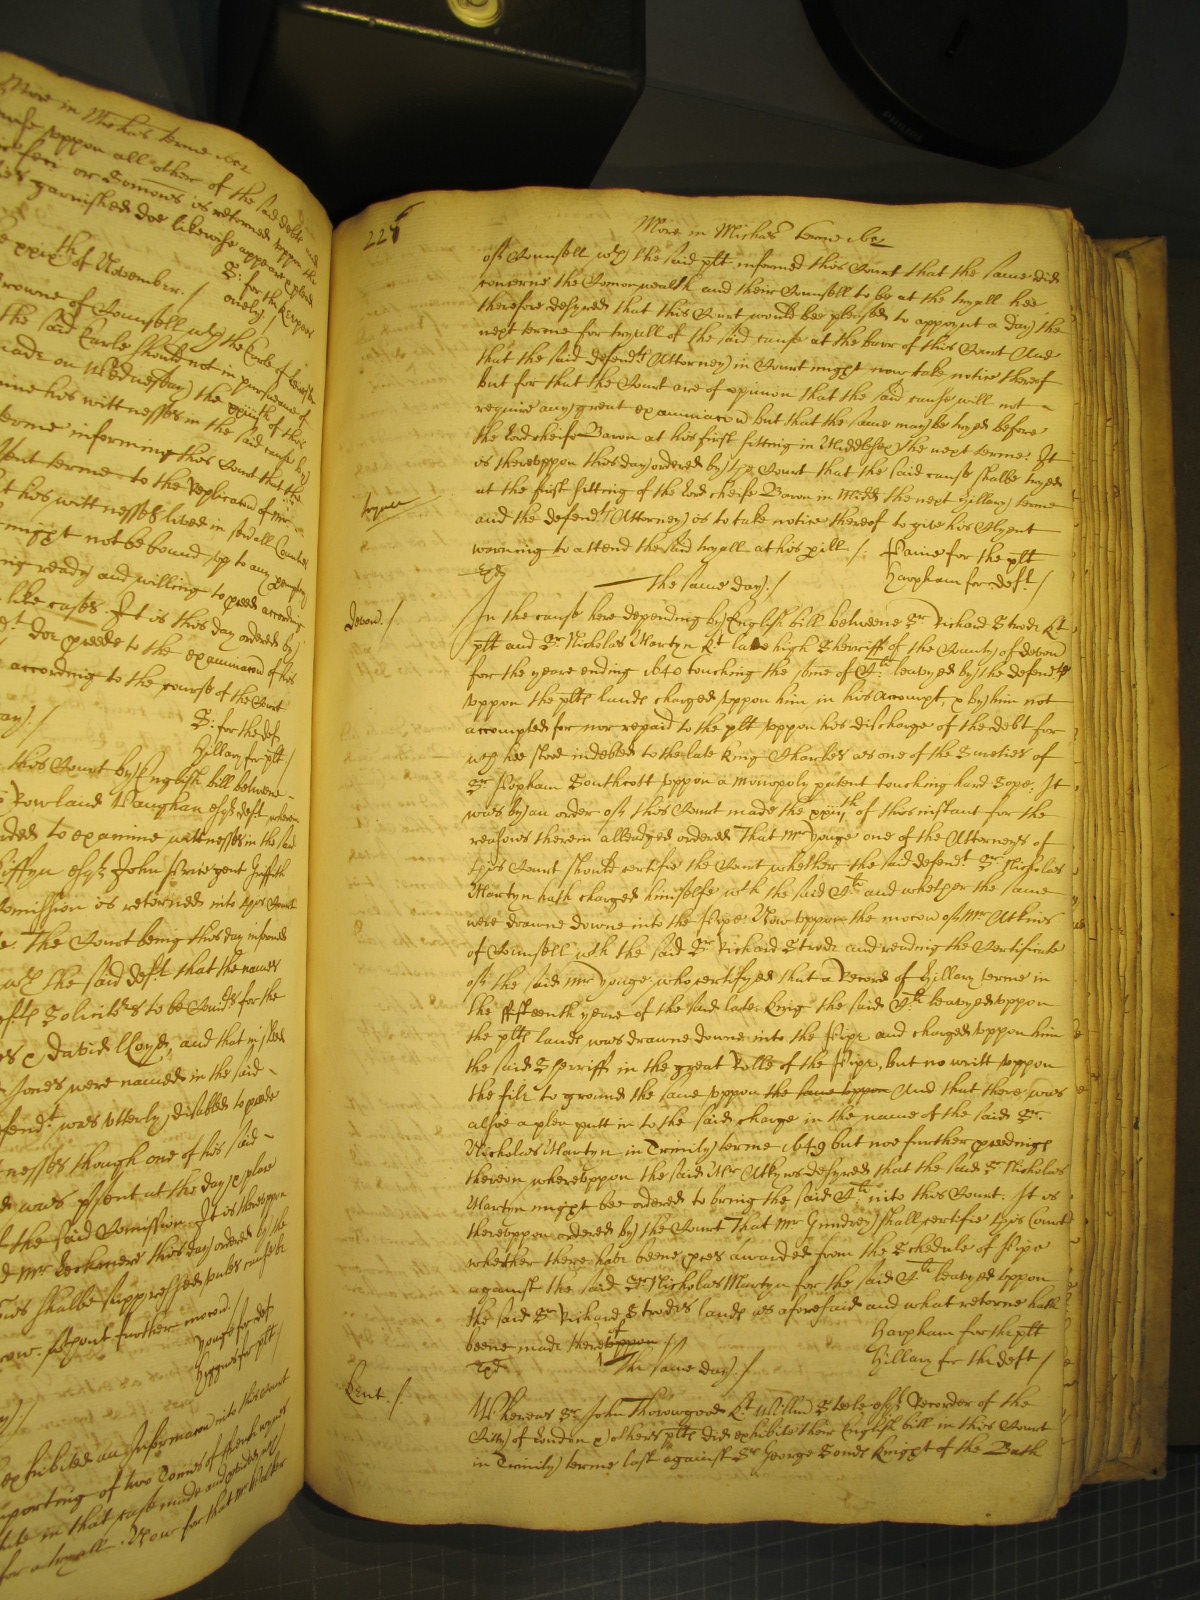 More in Michas terme 1652
uppon all other of the said debts and
or Somons is returned uppon the
garnished doe likewise appeare
S: for the Keepers
onely /
xxiiith of November. /
Browne of Counsell wth the Earle of
the said Earle should not in pursuance of
made on Wednesday the xviith of this
his wittnesses in the said cause by
terme informing this Court that the
terme to the Replicacon of Mr
his wittnesses lived in severall Counties
might not be bound up to any
ready and willing to pceed according
like cases. It is this day ordered by
doe pceede to the examinacon of his
according to the course of the Court
S: for the def
Hillary for plt /
day. /
this Court by English bill betweene
Rowland Vaughan esqr deft wherein
to examine wittnesses in the said
Griffyn esqr John Price gent Griffith
Comission is returned into this Court
The Court being this day informed
wth the said deft that the names
Solicitors to be Comrs for the
& David Lloyd, and that in stead
Jones were named in the said
defendt was utterly disabled to pceede
wittnesses though one of his said
was psent at the day & place
the said Comission It is thereuppon
Mr Lechmere this day ordered by the
shalbe suppressed unles cause be
further moved. /
Yonge for def
Higgins for plt /
exhibited an Informacon into this Court
importing of two Tonnes of french wynes
in that case made and provided
for a tryall. Now for that Mr Walter
225
More in Michas terme 1652
of Counsell wth the said plt informed this Court that the same did
concerne the Comonwealth and their Counsell to be at the tryall hee
therefore desyred that this Court would bee pleased to appoynt a day the
next terme for tryall of the said cause at the barr of this Court And
that the said defendts Attorney in Court might now take notice thereof
but for that the Court are of opinion that the said cause will not
require any great examinacon but that the same may be tryed before
the Lord cheife Baron at his first sitting in Middlesex the next terme: It
is thereuppon this day ordered by the Court that the said cause shalbe tryed
at the first sitting of the Lord cheife Baron in Midd the next Hillary terme
and the defendts Attorney is to take notice thereof to give his Clyent
warning to attend the said tryall at his pill. /. Payne for the plt
Harpham for deft. /
The same day. /
Devon. /
In the cause here depending by English bill betweene Sr Richard Strode Kt
plt and Sr Nicholas Martyn Kt late high Sherriff of the County of Devon
for the yeare ending 1640 touching the some of Cli leavyed by the defendte
uppon the plts lands charged uppon him in his Accompt, & by him not
accompted for nor repaid to the plt uppon his discharge of the debt for
wch hee stood indebted to the late King Charles as one of the Sureties of
Sr Popham Southcott uppon a monopoly patent touching hard Sope: It
was by an order of this Court made the xxiiith of this instant for the
reasons therein alleadged ordered That Mr Yonge one of the Attorneys of
this Court should certifie the Court whether the said defendt Sr Nicholas
Martyn hath charged himselfe wth the said Cli and whether the same
were drawne downe into the Pipe: Now uppon the mocon of Mr Atkins
of Counsell wth the said Sr Richard Strode and reading the Certificate
of the said Mr Yonge, who certifyed that a Record of Hillary terme in
the fifteenth yeare of the said late King the said Cli leavyed uppon
the plts lands was drawne downe into the Pipe and charged uppon him
the said Sherriff in the great Rolle of the Pipe, but no writt uppon
the file to ground the same uppon the same uppon And that there was
alsoe a plea putt in to the said charge in the name of the said Sr
Nicholas Martyn in Trinity terme 1649 but noe further pceedings
thereon whereuppon the said Mr Atkyns desyred that the said Sr Nicholas
Martyn might bee ordered to bring the said Cli into this Court. It is
thereuppon ordered by the Court That Mr Grimdrey shall certifie this Court
whether there have beene pces awarded from the Schedule of Pipe
against the said Sr Nicholas Martyn for the said Cli leavyed uppon
the said Sr Richard Strodes lands as aforesaid and what retorne hath
beene made thereuppon it /
Harpham for the plt
Hillary for the deft /
The same day. /
Kent. /
Whereas Sr John Thorowgood Kt William Steele esqr Recorder of the
Citty of London & others plts did exhibite their English bill in this Court
in Trinity terme last against Sr George Sondes Knight of the Bath